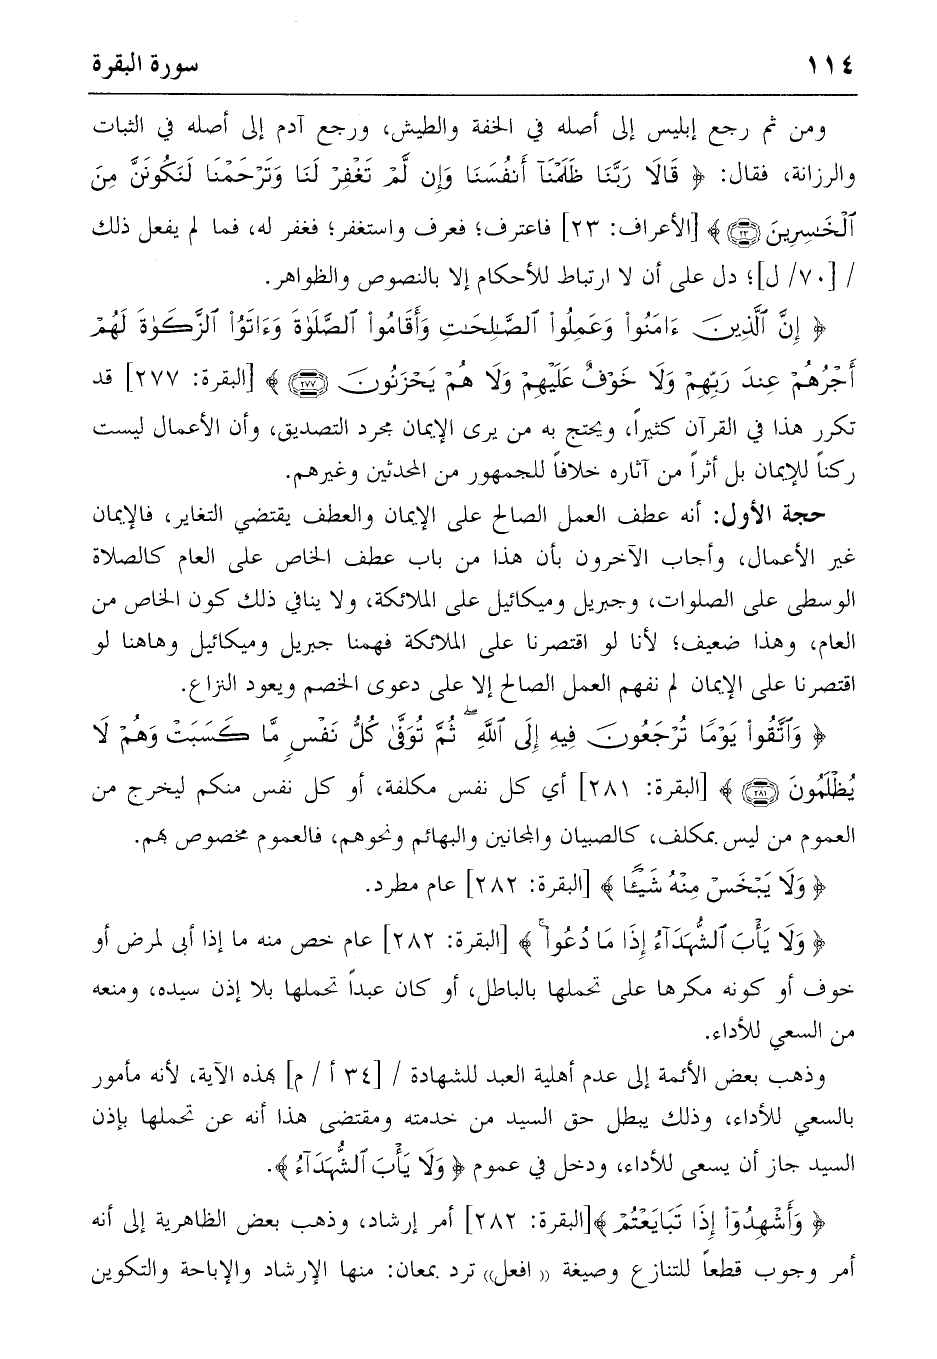 ١١٤ سورة البقرة
ومن ثم رجع إبليس إلى أصله في الخفة والطيش، ورجع آدم إلى أصله في الثبات
والرزانة، فقال: ﴿ قَالَا رَبَّنَا ظَلَمْنَآ أَنفُسَنَا وَإِن لَّمْ تَغْفِرْ لَنَا وَتَرْحَمْنَا لَنَكُونَنَّ مِنَ
ٱلْخَٰسِرِينَ ٢٣ ﴾ [الأعراف: ٢٣] فاعترف؛ فعرف واستغفر؛ فغفر له، فما لم يفعل ذلك
/ [٧٠/ ل]؛ دل على أن لا ارتباط للأحكام إلا بالنصوص والظواهر.
﴿ إِنَّ ٱلَّذِينَ ءَامَنُوا۟ وَعَمِلُوا۟ ٱلصَّٰلِحَٰتِ وَأَقَامُوا۟ ٱلصَّلَوٰةَ وَءَاتَوُا۟ ٱلزَّكَوٰةَ لَهُمْ
أَجْرُهُمْ عِندَ رَبِّهِمْ وَلَا خَوْفٌ عَلَيْهِمْ وَلَا هُمْ يَحْزَنُونَ ٢٧٧ ﴾ [البقرة: ٢٧٧] قد
تكرر هذا في القرآن كثيراً، ويحتج به من يرى الإيمان مجرد التصديق، وأن الأعمال ليست
ركناً للإيمان بل أثراً من آثاره خلافاً للجمهور من المحدثين وغيرهم.
حجة الأول: أنه عطف العمل الصالح على الإيمان والعطف يقتضي التغاير، فالإيمان
غير الأعمال، وأجاب الآخرون بأن هذا من باب عطف الخاص على العام كالصلاة
الوسطى على الصلوات، وجبريل وميكائيل على الملائكة، ولا ينافي ذلك كون الخاص من
العام، وهذا ضعيف؛ لأنا لو اقتصرنا على الملائكة فهمنا جبريل وميكائيل وهاهنا لو
اقتصرنا على الإيمان لم نفهم العمل الصالح إلا على دعوى الخصم ويعود النزاع.
﴿ وَٱتَّقُوا۟ يَوْمًا تُرْجَعُونَ فِيهِ إِلَى ٱللَّهِ ۖ ثُمَّ تُوَفَّىٰ كُلُّ نَفْسٍ مَّا كَسَبَتْ وَهُمْ لَا
يُظْلَمُونَ ٢٨١ ﴾ [البقرة: ٢٨١] أي كل نفس مكلفة، أو كل نفس منكم ليخرج من
العموم من ليس بمكلف، كالصبيان والمجانين والبهائم ونحوهم، فالعموم مخصوص بهم.
﴿ وَلَا يَبْخَسْ مِنْهُ شَيْـًٔا ﴾ [البقرة: ٢٨٢] عام مطرد.
﴿ وَلَا يَأْبَ ٱلشُّهَدَآءُ إِذَا مَا دُعُوا۟ ۚ ﴾ [البقرة: ٢٨٢] عام خص منه ما إذا أبى لمرض أو
خوف أو كونه مكرها على تحملها بالباطل، أو كان عبداً تحملها بلا إذن سيده، ومنعه
من السعي للأداء.
وذهب بعض الأئمة إلى عدم أهلية العبد للشهادة / [٣٤ أ / م] بهذه الآية، لأنه مأمور
بالسعي للأداء، وذلك يبطل حق السيد من خدمته ومقتضى هذا أنه عن تحملها بإذن
السيد جاز أن يسعى للأداء، ودخل في عموم ﴿ وَلَا يَأْبَ ٱلشُّهَدَآءُ ﴾.
﴿ وَأَشْهِدُوٓا۟ إِذَا تَبَايَعْتُمْ ﴾[البقرة: ٢٨٢] أمر إرشاد، وذهب بعض الظاهرية إلى أنه
أمر وجوب قطعاً للتنازع وصيغة ((افعل)) ترد بمعان: منها الإرشاد والإباحة والتكوين